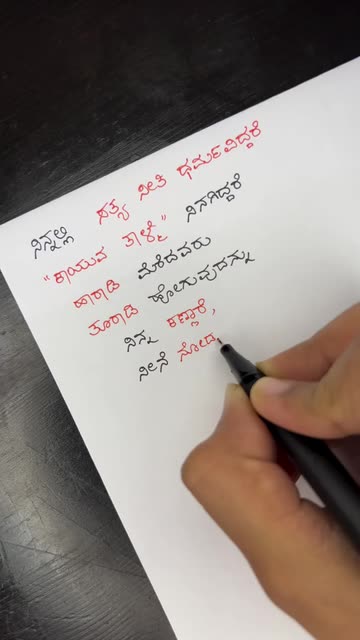 ನಿನ್ನಲ್ಲಿ ಸತ್ಯ ನೀತಿ ಧರ್ಮವಿದ್ದರೆ
"ಕಾಯುವ ತಾಳ್ಮೆ" ನಿನಗಿದ್ದರೆ
ಹಾರಾಡಿ ಮೆರೆದವರು
ತೂರಾಡಿ ಹೋಗುವುದನ್ನು
ನಿನ್ನ ಕಣ್ಣಾರೆ,
ನೀನೆ ನೋಡ